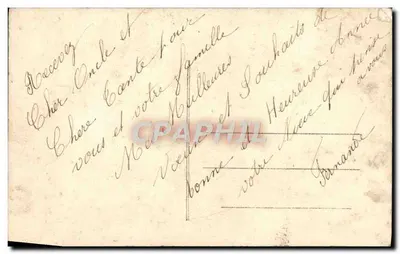 Recevez
Cher Oncle et
Chère Tante pour
vous et votre famille
Mes Meilleures
Voeux et Souhaits de
bonne et Heureuse Année
votre qui pense
a vous
Fernand
CPHRIL